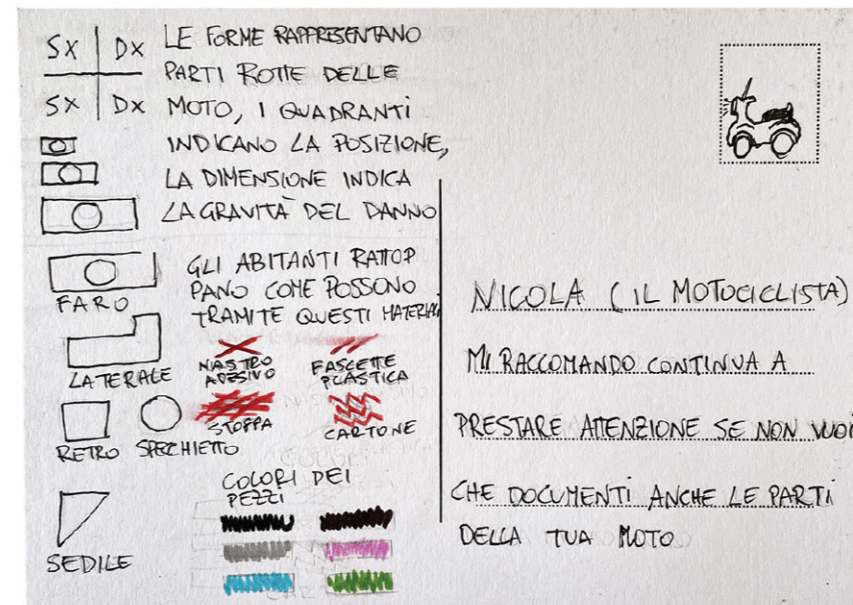 SX DX
SX DX
LE FORME RAPPRESENTANO
PARTI ROTTE DELLE
MOTO, I QUADRANTI
INDICANO LA POSIZIONE,
LA DIMENSIONE INDICA
LA GRAVITÀ DEL DANNO
FARO
LATERALE
RETRO SPECCHIETTO
SEDILE
GLI ABITANTI RATTOP
PANO COME POSSONO
TRAMITE QUESTI MATERIALI
NASTRO
ADESIVO
FASCETTE
PLASTICA
STOFFA
CARTONE
COLORI DEI
PEZZI
NICOLA (IL MOTOCICLISTA)
MI RACCOMANDO CONTINUA A
PRESTARE ATTENZIONE SE NON VUOI
CHE DOCUMENTI ANCHE LE PARTI
DELLA TUA MOTO